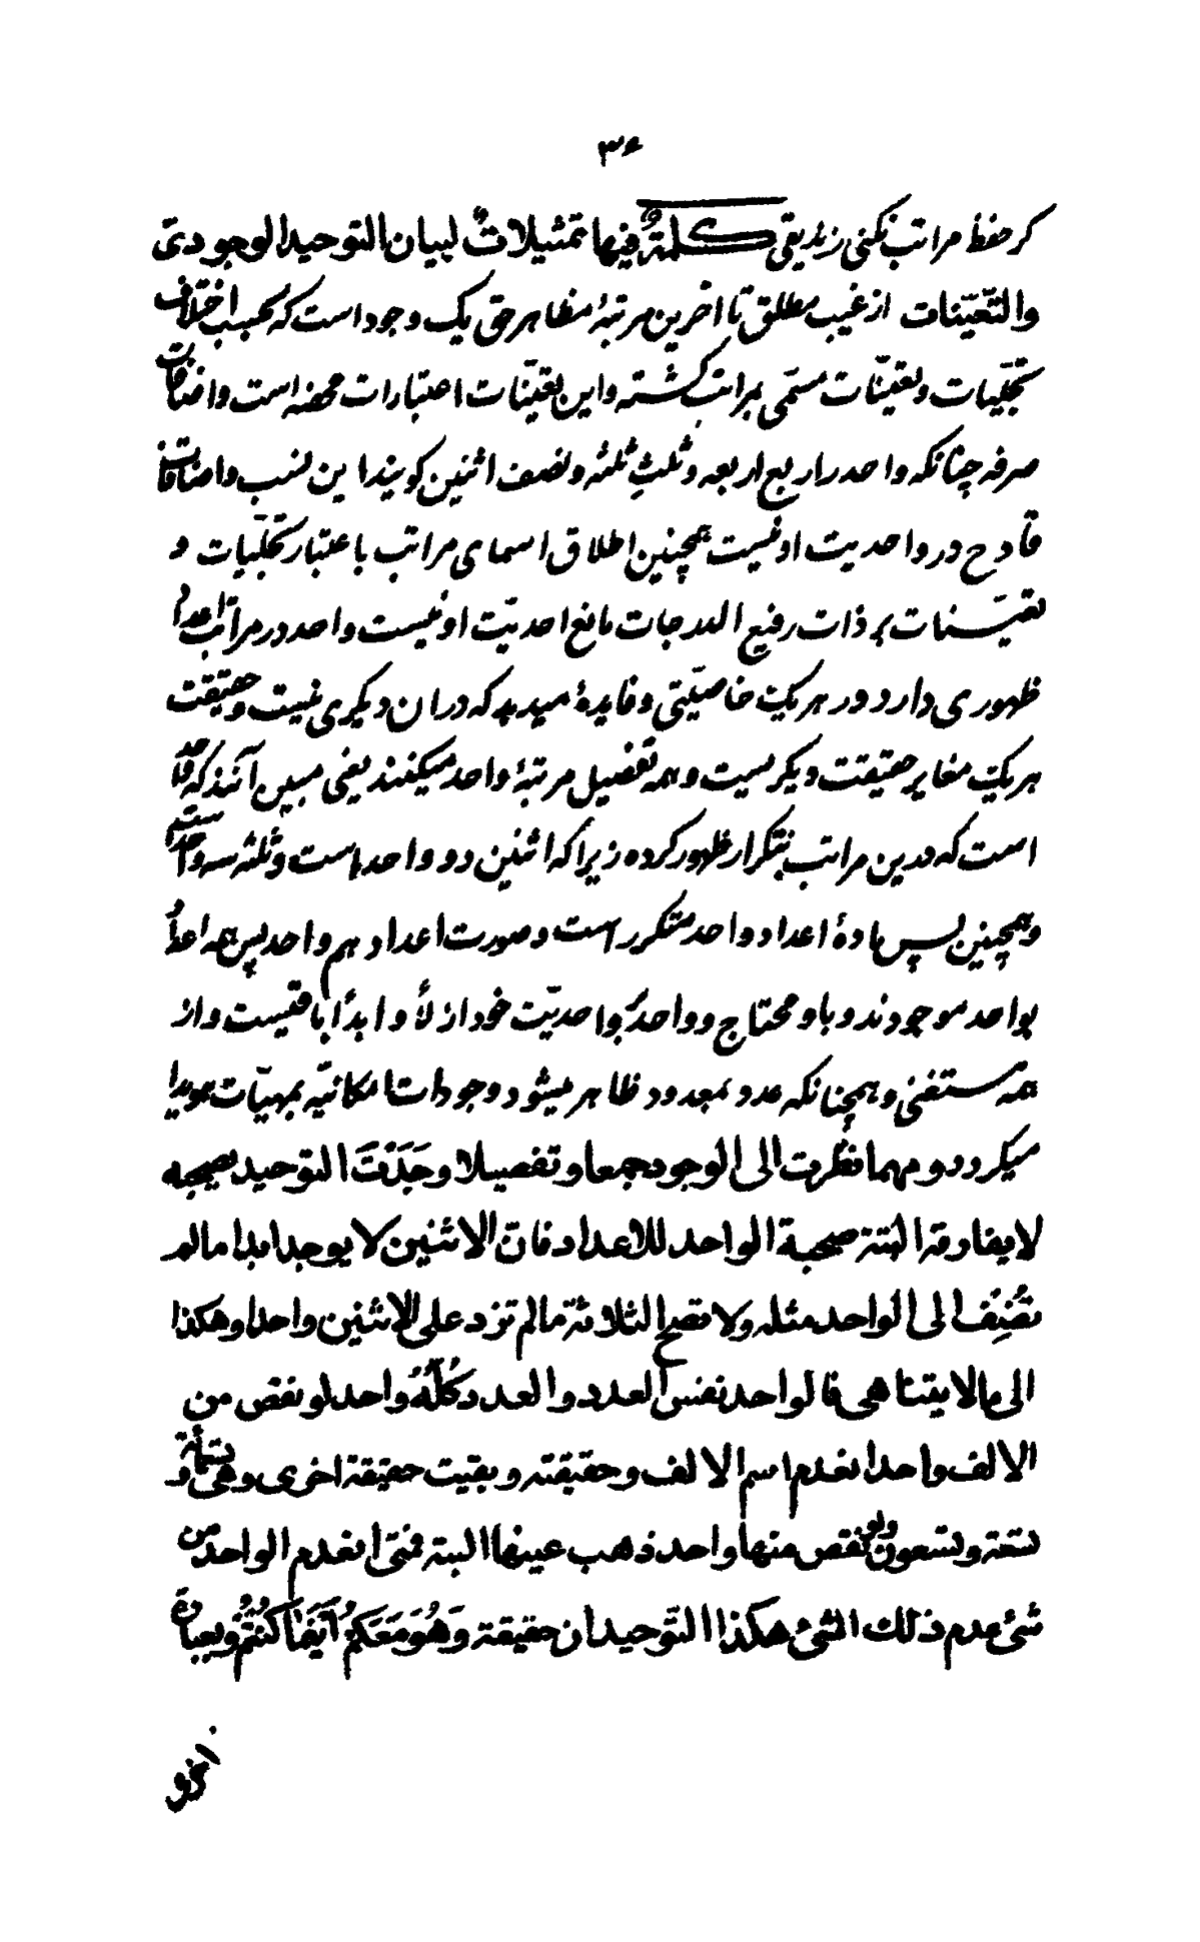 ۳۶
گر حفظ مراتب نکنی زندیقی کلمةٌ فیها تمثیلاتٌ لبیان التوحید الوجودیّ
والتّعیّنات از غیب مطلق تا اخرین مرتبهٔ مظاهر حق یک وجود است که بحسب اختلاف
تجلّیات و تعیّنات مسمّی بمراتب گشته و این تعیّنات اعتبارات محضه است و اضافات
صرفه چنانکه واحد را ربع اربعه و ثلث ثلثه و نصف اثنین گویند این نسب و اضافات
قادح در واحدیت او نیست همچنین اطلاق اسمای مراتب باعتبار تجلّیات و
تعیّنات بر ذات رفیع الدرجات مانع احدیّت او نیست واحد در مراتب اعداد
ظهوری دارد در هر یک خاصیّتی و فایدهٔ میدهد که در ان دیگری نیست و حقیقت
هر یک مغایر حقیقت دیگریست و همه تفصیل مرتبهٔ واحد میکنند یعنی مبین آنند که واحد
است که درین مراتب بتکرار ظهور کرده زیرا که اثنین دو واحد است و ثلثه سه واحدست
و همچنین پس مادهٔ اعداد واحد متکرر است و صورت اعداد هم واحد پس همه اعداد
بواحد موجودند و باو محتاج و واحد بواحدیّت خود ازلاً و ابداً باقیست و از
همه مستغنی و همچنانکه عدد بمعدود ظاهر میشود وجودات امکانیّه بمهیّات هویدا
میگردد و مهما نظرت الی الوجود جمعا و تفصیلا وجَدْتَ التوحید یصحبه
لا یفارقه البتة صحبة الواحد للاعداد فان الاثنین لا یوجد ابدا ما لم
تُضِفْ الی الواحد مثله ولا تصح الثلاثة ما لم تزد علی الاثنین واحدا وهکذا
الی ما لا یتناهی فالواحد نفس العدد والعدد کُلُّهُ واحد لو نقص من
الالف واحد انعدم اسم الالف وحقیقته وبقیت حقیقة اخری وهی تسعمأة و
تسعة وتسعون ولو نقص منها واحد ذهب عینها البتة فمتی انعدم الواحد من
شیء عدم ذلک الشیء هکذا التّوحید ان حقیقة وَهُوَ مَعَکُمْ اَیْنَمَا کُنْتُمْ وبعبارة